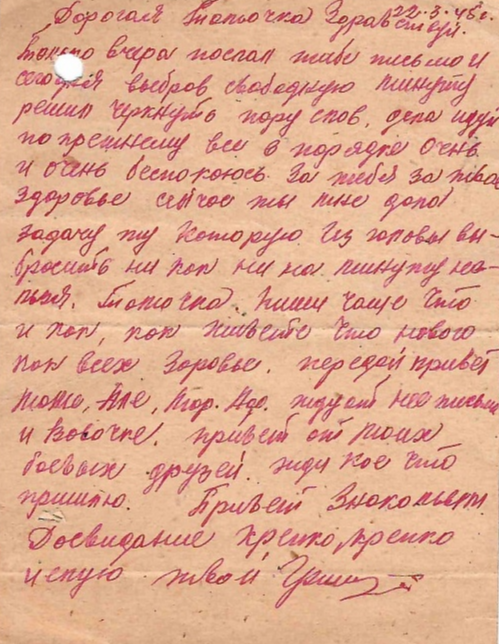 22-3-45 г.
Дорогая Таточка Здравствуй.
Только вчера послал тибе письмо и
сегодня выбров свободную минуту
решил черкнуть пару слов, дела идут
попрежнему все в порядке очень
и очень беспокоюсь За тебя за твое
здоровье сейчас ты мне дала
задачу ту которую Из головы вы-
бросить ни как ни на минуту не-
льзя. Таточка. пиши чаще что
и как, как живете что нового
как всех Зоровье. передай привет
маме, Але, жду от нее письма
и Вовочке. привет от моих
боевых друзей. жди кое что
пришлю. Привет Знакомым
Досвидание крепко, крепко
целую твой Гриша